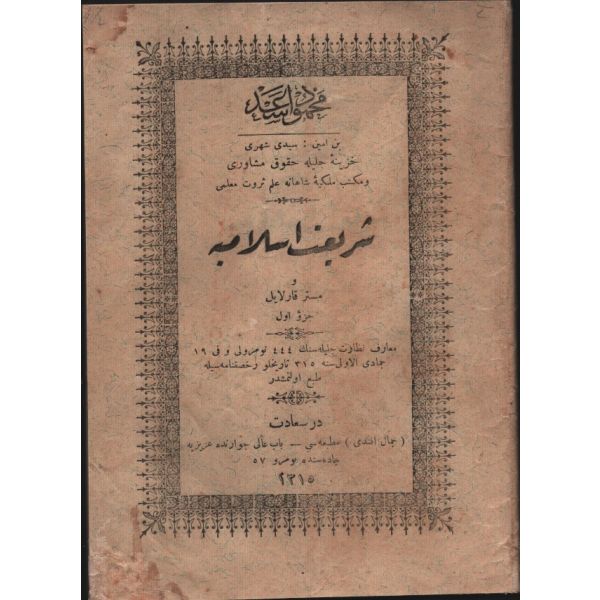 محمود اسعد
بن امین : سیدی شهری
خزینهٔ جلیله حقوق مشاوری
و مکتب ملکیهٔ شاهانه علم ثروت معلمی
شریعت اسلامیه
و
مستر قارلایل
جزؤ اول
معارف نظارت جلیله‌سنك ٤٤٤ نومرولی و فی ١٩
جمادی الاولی سنه ٣١٥ تاریخلو رخصتنامه‌سیله
طبع اولنمشدر
در سعادت
( جمال افندی ) مطبعه‌سی — باب عالی جوارنده عزیزیه
جاده‌سنده نومرو ٥٧
١٣١٥